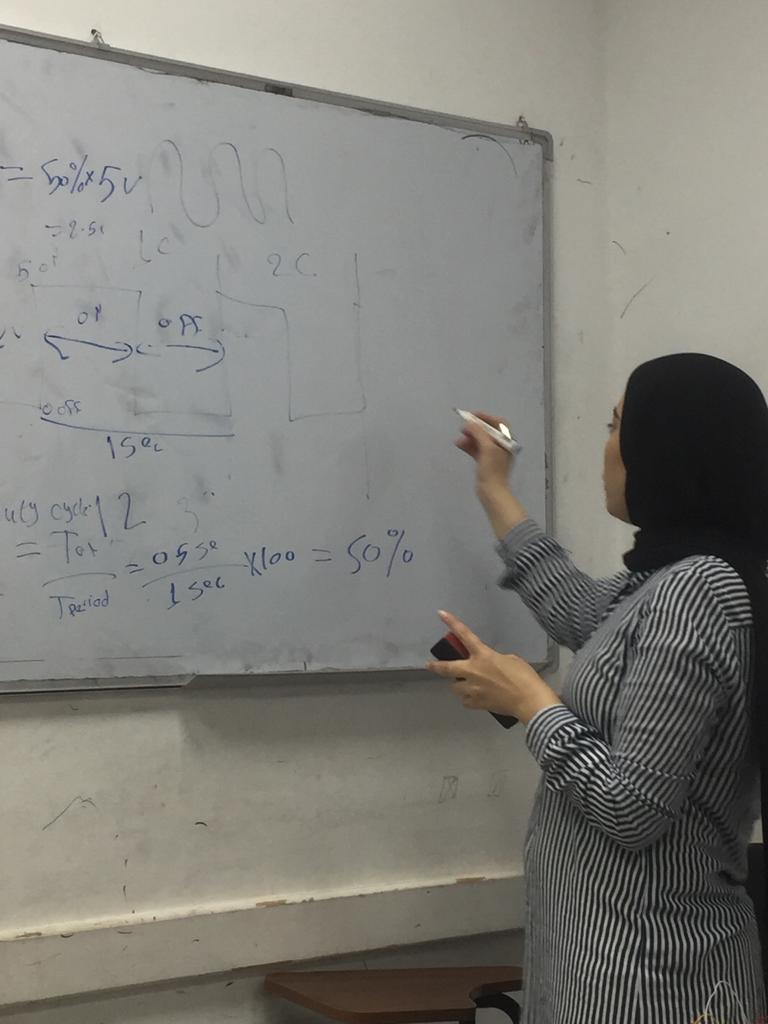 = 50% x 5v
= 2.5v
1 C
2 C
on
off
off
1 Sec
duty cycle 1 2 3
= Ton / Tperiod = 0.5 se / 1 sec x100 = 50%